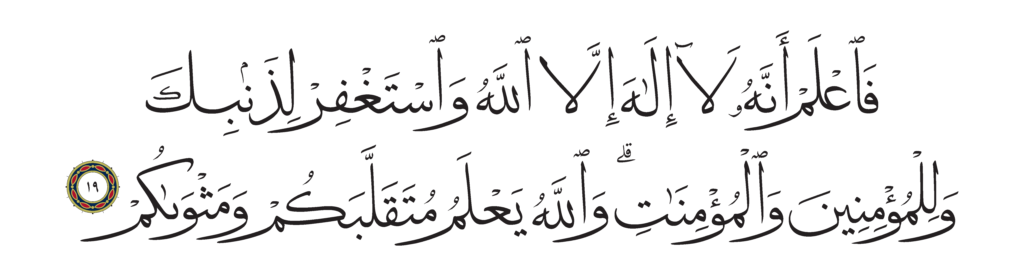 فَٱعۡلَمۡ أَنَّهُۥ لَآ إِلَٰهَ إِلَّا ٱللَّهُ وَٱسۡتَغۡفِرۡ لِذَنۢبِكَ
وَلِلۡمُؤۡمِنِينَ وَٱلۡمُؤۡمِنَٰتِۗ وَٱللَّهُ يَعۡلَمُ مُتَقَلَّبَكُمۡ وَمَثۡوَىٰكُمۡ ١٩